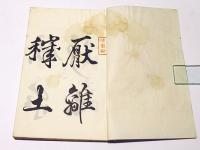 厭離
穢土